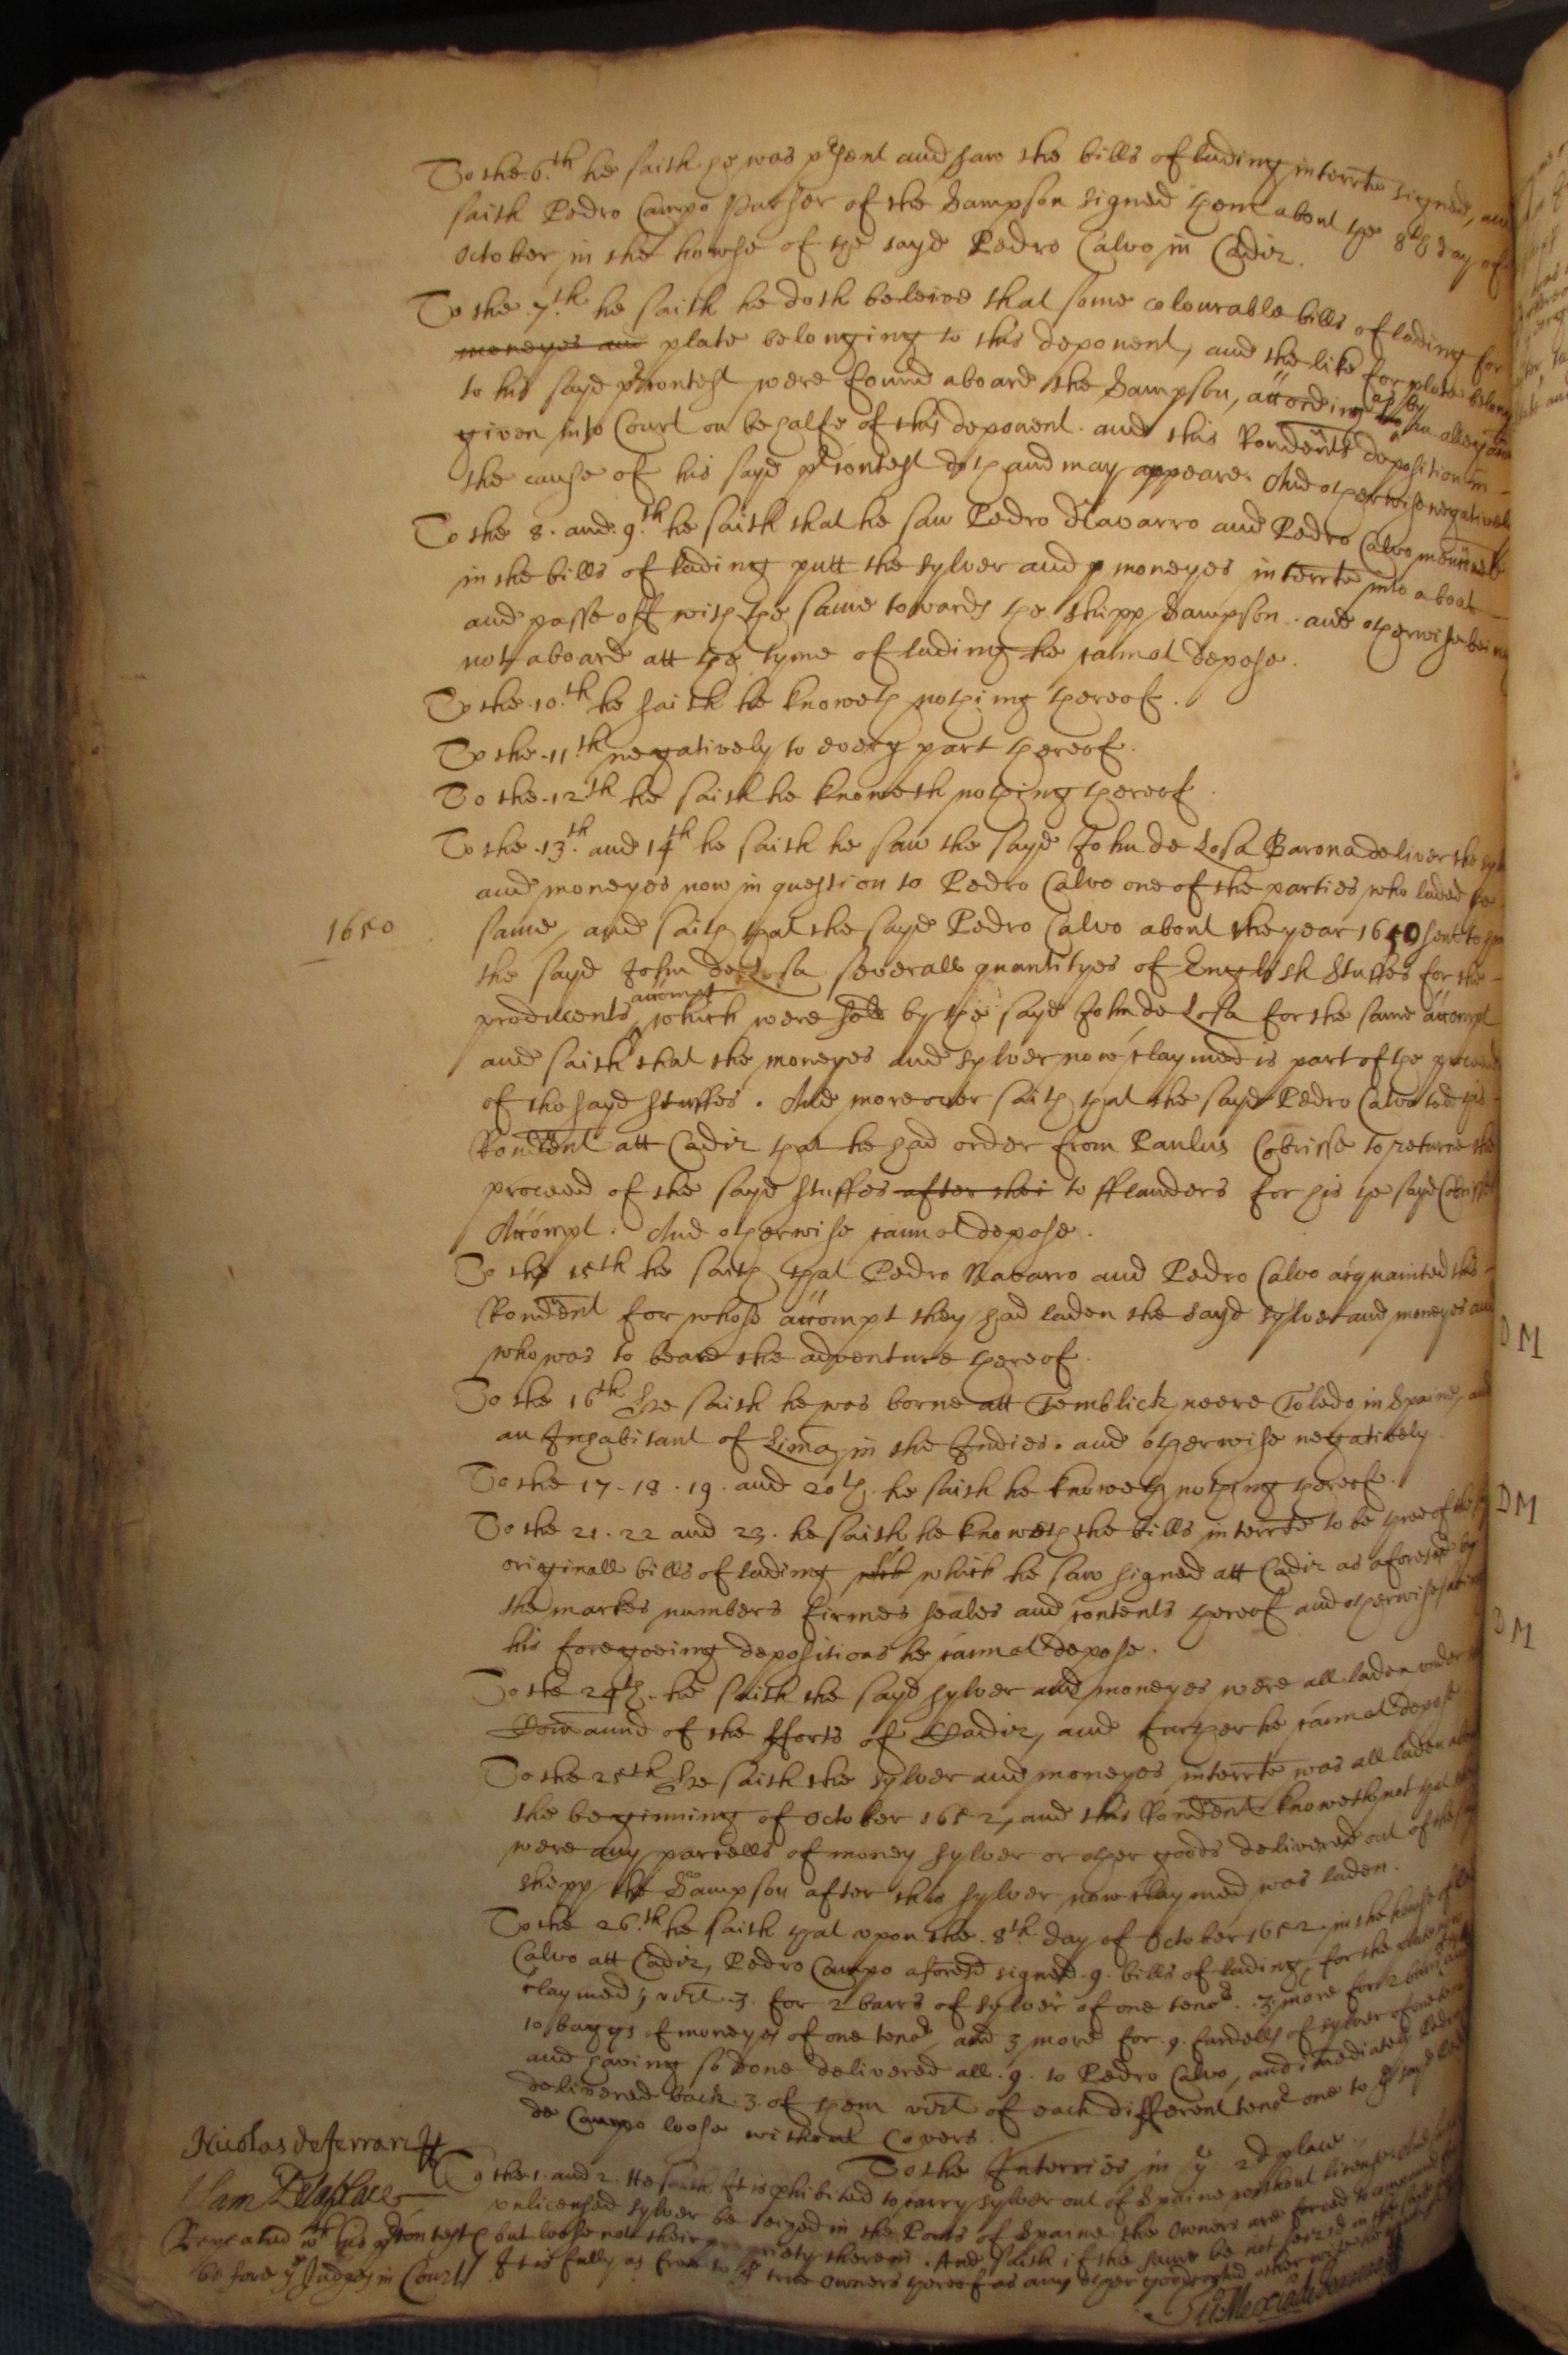 To the .6.th he saith he was pr͠sent and saw the bills of lading interr̄te signed, and
saith Pedro Campo Purser of the Sampson signed them about the 8th day of
October in the howse of the sayd Pedro Calvo in Cadiz.
To the .7.th he saith he doth beleive that some colourable bills of lading for
moneyes and plate belonging to this deponent, and the like for plate belong
to his sayd pr͠contest were found aboard the Sampson, according as by an allegãon
given into Court on behalfe of this deponent. and this Rondents deposition in
the cause of his sayd pr͠contest doth and may appeare. And otherwise negatively
To the 8. and .9.th he saith that he saw Pedro Navarro and Pedro Calvo menc̄oned
in the bills of lading putt the sylver and moneyes interr̄te into a boat
and passe off with the same towards the shipp Sampson. and otherwise being
not aboard att the tyme of lading he cannot depose.
To the .10.th he saith he knoweth nothing thereof.
To the .11.th negatively to every part thereof.
To the .12.th he saith he knoweth nothing thereof.
To the .13.th and 14th he saith he saw the sayd John de Losa Barona deliver the
and moneyes now in question to Pedro Calvo one of the parties who laded the
1650
same, and saith that the sayd Pedro Calvo about the year 1650 sent to
the sayd John de Losa severall quantityes of English Stuffes for the
producents accompt which were sold by the sayd John de Losa for the same accompt
and saith that the moneyes and sylver now claymed is part of the proceed
of the sayd stuffes. And moreover saith that the sayd Pedro Calvo told this
Rondent att Cadiz that he had order from Paulus Cobrisse to returne the
proceed of the sayd stuffes after thei to fflanders for his the sayd Cobrisse
Accompt. And otherwise cannot depose.
To the 15th he saith that Pedro Navarro and Pedro Calvo acquainted this
Rondent for whose accompt they had laden the sayd sylver and moneyes and
who was to beare the adventure thereof.
DM
To the 16th Hee saith he was borne att Temblick neere Toledo in Spaine, and
an Inhabitant of Lima in the Indies. and otherwise negatively.
To the 17. 18. 19. and 20th. he saith he knoweth nothing thereof.
DM
To the 21. 22 and 23. he saith he knoweth the bills interr̄te to be three of the
originall bills of lading wch which he saw signed att Cadiz as aforesd by
the markes numbers firmes seales and contents thereof and otherwise saving
DM
his foregoeing depositions he cannot depose.
To the 24th. he saith the sayd sylver and moneyes were all laden under
Comaund of the fforts of Cadiz, and further he cannot depose
To the 25th Hee saith the sylver and moneyes interr̄te was all laden about
the beginning of October 1652, and this Rondent knoweth not that
were any parcells of money sylver or other goods delivered out of the
shipp the Sampson after this sylver now claymed was laden.
To the 26.th he saith that upon the .8th. day of October 1652 in the house of
Calvo att Cadiz, Pedro Campo aforesd signed .9. bills of lading, for the plate now
claymed, vizt .3. for 2 barrs of sylver of one teno.r .3. more for 2 barrs
10 baggs of moneyes of one teno.r, and 3 more for .9. fardells of sylver of one
and having so done delivered all .9. to Pedro Calvo, and im̄ediately Pedro
delivered back .3. of them vizt of each different teno.r one to ye sayd
de Campo loose without Covers.
To the Interr̄ies in ye 2d place.
To the 1. and 2. He saith It is p̱hibited to carry sylver out of Spaine without license. And
unlicensed sylver be seized in the Ports of Spaine the Owners are forced to
but loose not their propriety therein. And saith if the same be not seized in the
It is fully as free to ye true Owners thereof as any other goods
Nicolas de ferrari
Repeated wth his pr͠contest
before ye Judges in Court